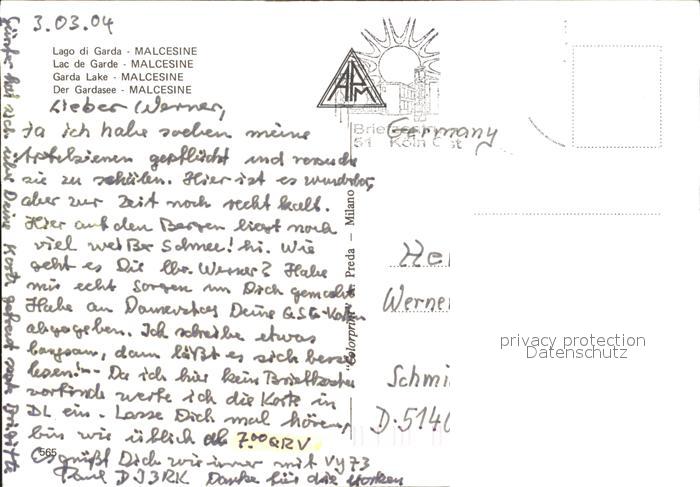 3.03.04
Lago di Garda - MALCESINE
Lac de Garde - MALCESINE
Garda Lake - MALCESINE
Der Gardasee - MALCESINE
Lieber Werner,
Ja ich habe soeben meine
gepflückt und versuche
sie zu schälen. Hier ist es wunderbar,
aber zur Zeit noch recht kalt.
Hier auf den Bergen liegt noch
viel weißer Schnee! hi. Wie
geht es Dir lbr. Werner? Habe
mir echt Sorgen um Dich gemacht.
Habe am Donnerstag Deine QSL-Karten
abgegeben. Ich schreibe etwas
langsam, dann läßt es sich besser
lesen!- Da ich hier kein Briefkasten
vorfinde werfe ich die Karte in
DL ein. Lasse Dich mal hören,
bin wie üblich ab 7.00 QRV
Es grüßt Dich wie immer mit Vy 73
Paul DJ3RK Danke für die Marken
565
hat sich über Deine Karte gefreut sagt Brigitte
"Colorprint" Preda - Milano
APM
Brie
51 Köln
Germany
He
Werne
Schmi
D-514
privacy protection
Datenschutz